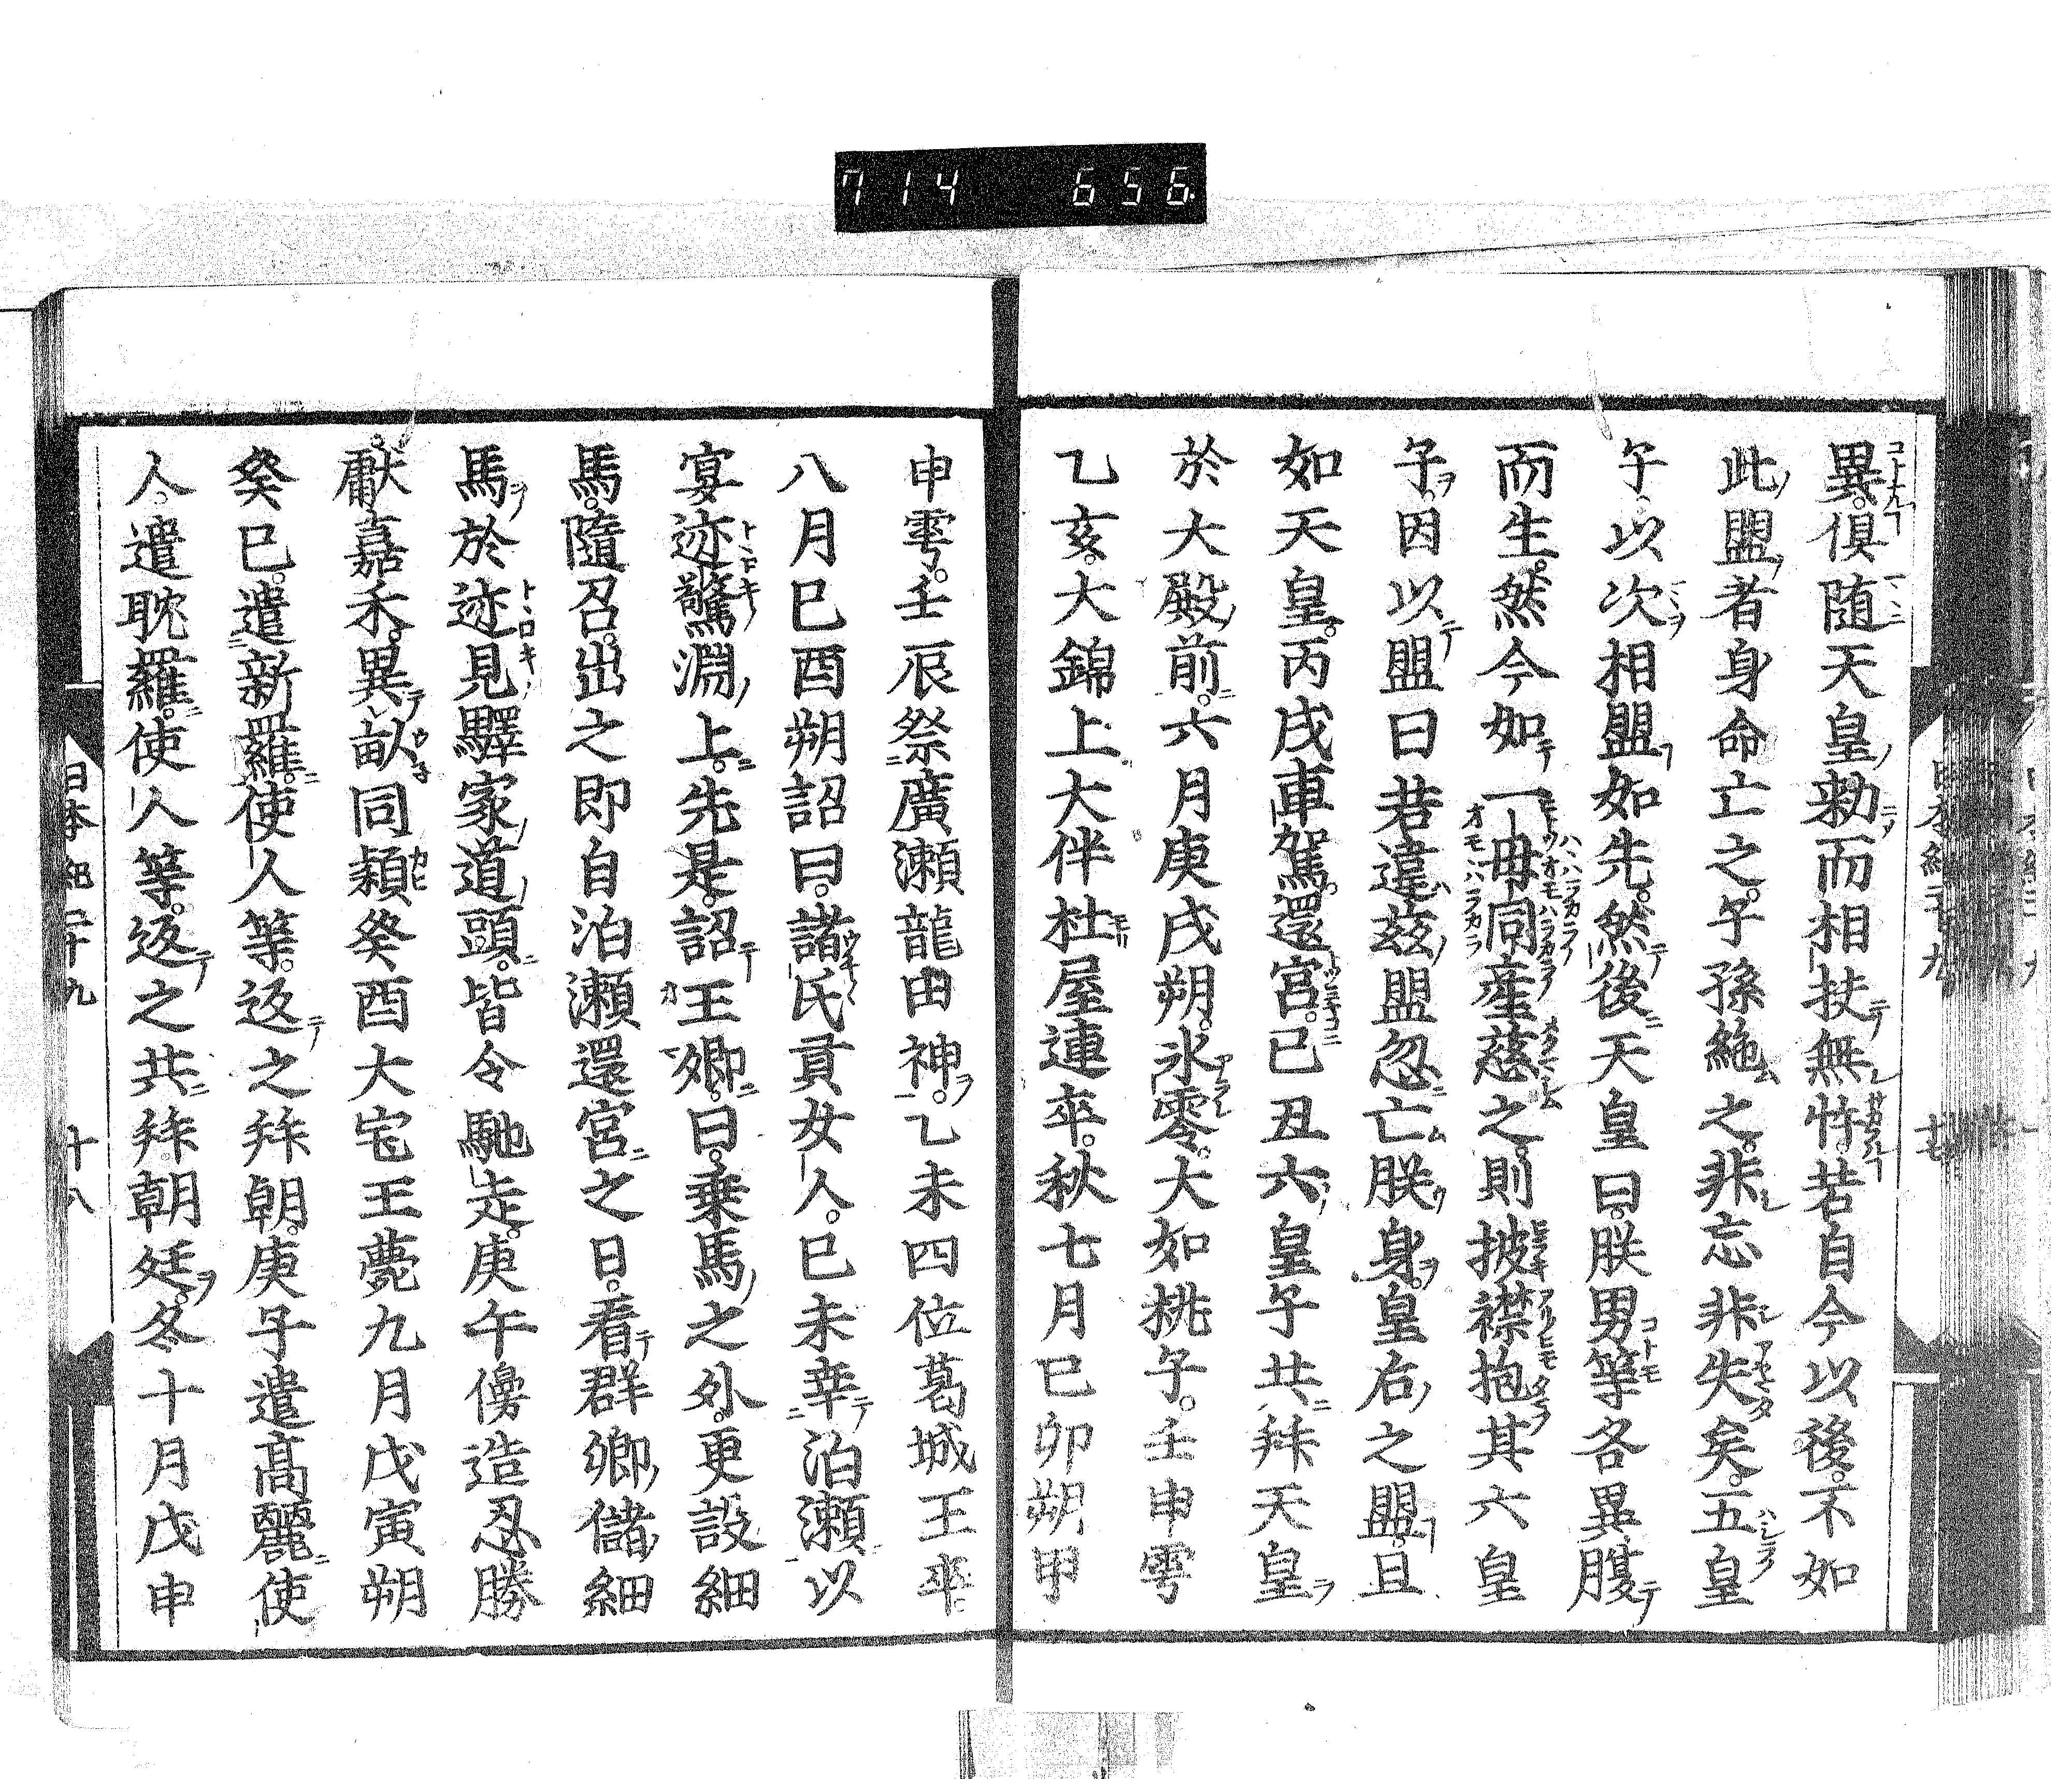 714 656
異。倶随天皇勅而相扶無忤。若自今以後。不如
此盟者身命亡之。子孫絶之。非忘非失矣。五皇
子。以次相盟如先。然後天皇曰。朕男等各異腹
而生。然今如一母同産慈之。則披襟抱其六皇
子。因以盟曰若違玆盟忽亡朕身。皇后之盟。且
如天皇。丙戌車駕。還宮。已丑六皇子共拜天皇
於大殿前。六月庚戌朔。氷零。大如桃子。壬申雩
乙亥。大錦上大伴杜屋連卒。秋七月已卯朔甲
申雩。壬辰祭廣瀬龍田神。乙未四位葛城王卒。
八月已酉朔詔曰。諸氏貢女人。已未幸泊瀬以
宴迹驚淵上。先是。詔王卿。曰。乗馬之外。更設細
馬。隨召。出之即自泊瀬還宮之日。看群卿儲細
馬於迹見驛家道頭。皆令馳走。庚午儐造忍勝
獻嘉禾。異畝同頴癸酉大宅王薨九月戊寅朔
癸巳。遣新羅。使人等。返之拜朝。庚子遣髙麗使
人。遣耽羅。使人等。返之共拜朝廷。冬十月戊申
日本紀二十九 十八